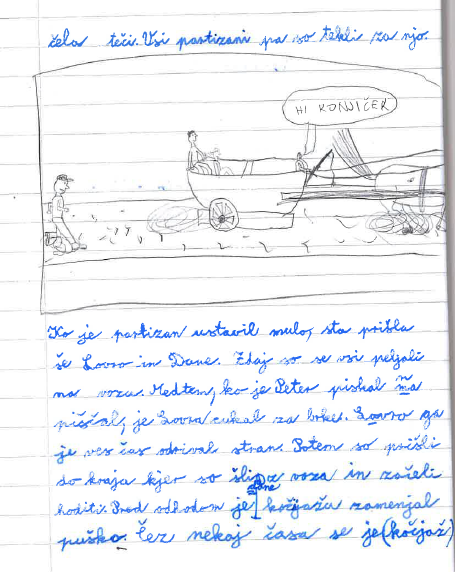 čela teči. Vsi partizani pa so tekli za njo.
HI KONJIČEK
Ko je partizan ustavil mulo, sta prišla
še Lovro in Dane. Zdaj so se vsi peljali
na vozu. Medtem, ko je Peter piskal na
piščal, je Lovra cukal za brke. Lovro ga
je ves čas odrival stran. Potem so prišli
do kraja kjer so šli z voza in začeli
hoditi. Pred odhodom je kočijažu zamenjal
puško. Čez nekaj časa se je (kočijaž)